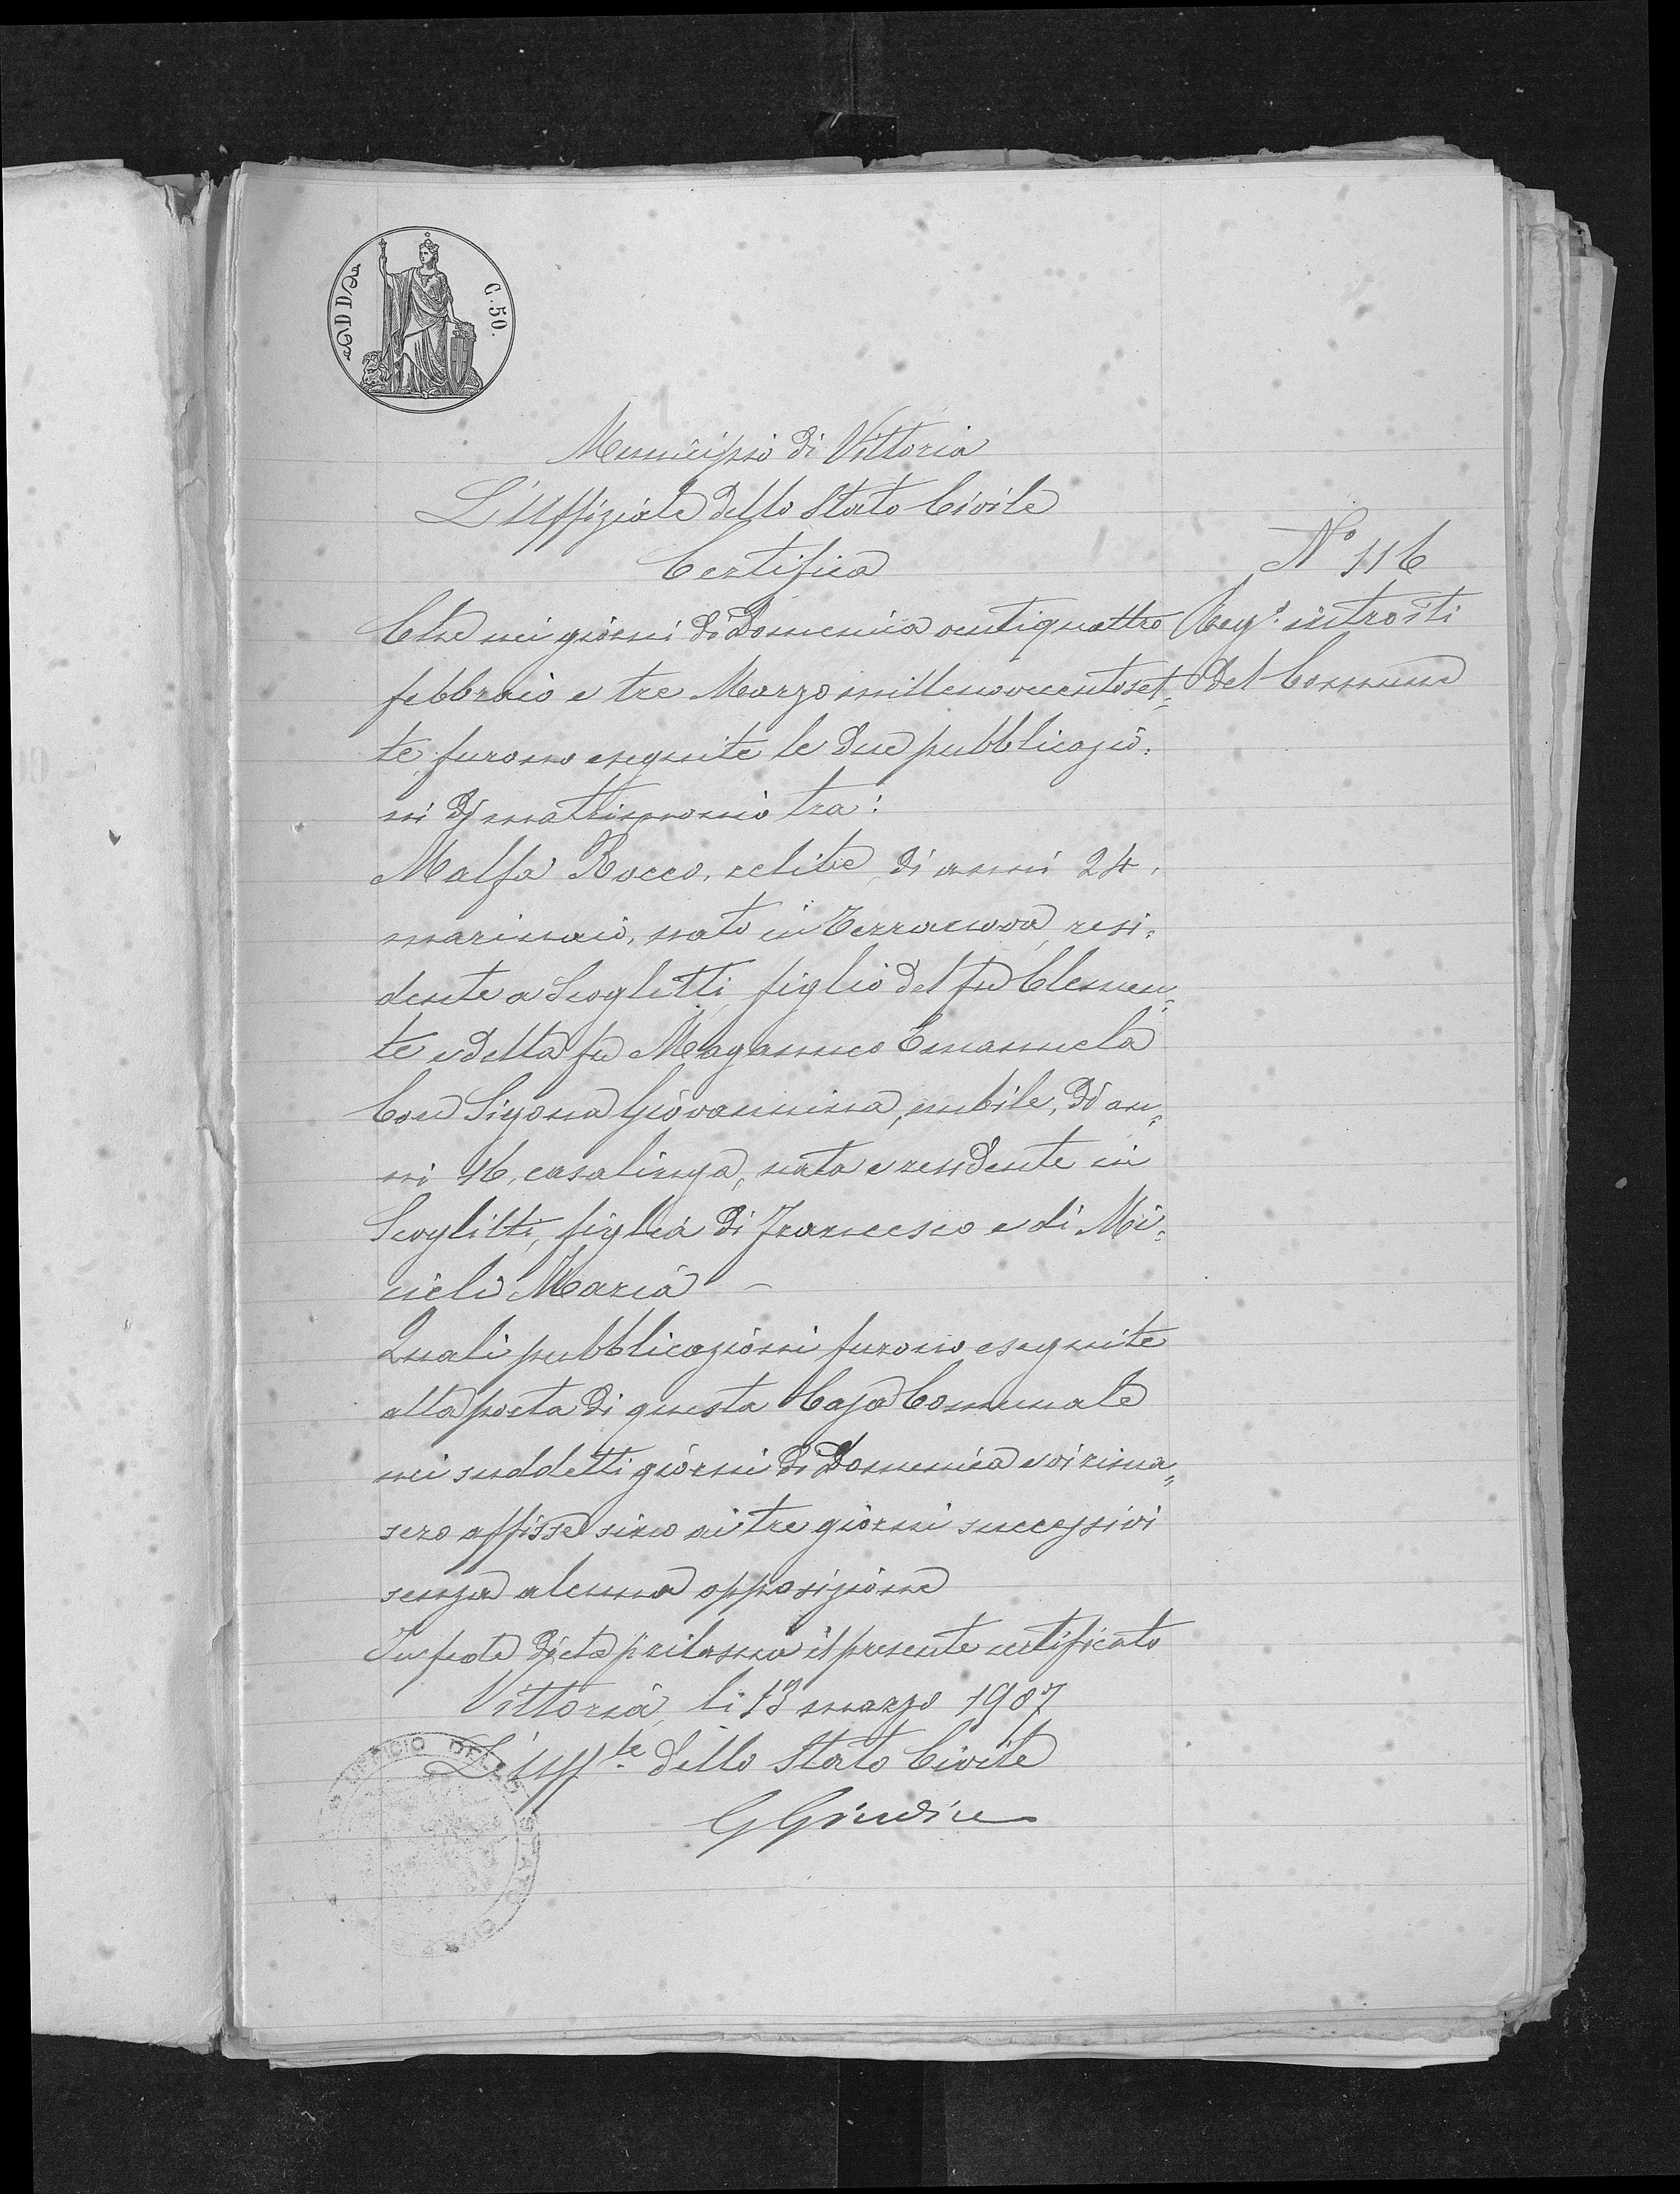 C. 50.
Municipio di Vittoria
L'Uffiziale dello Stato Civile
Certifica
Nº 116
Reg.º introiti
del Comune
Che nei giorni di Domenica ventiquattro
febbraio e tre Marzo millenovecentoset=
te, furono eseguite le due pubblicazio=
ni di matrimonio tra:
Malfa Rocco, celibe, di anni 24,
marinaio, nato in Terranova, resi=
dente a Scoglitti, figlio del fu Clemen=
te e della fu Maganuco Emanuela
Con Sigona Giovannina, nubile, di an=
ni 16, casalinga, nata e residente in
Scoglitti, figlia di Francesco e di Mi=
cieli Maria -
Quali pubblicazioni furono eseguite
alla porta di questa Casa Comunale
nei suddetti giorni di Domenica e vi rima=
sero affisse sino ai tre giorni successivi
senza alcuna opposizione
In fede di che si rilascia il presente certificato
Vittoria, li 13 marzo 1907
L'Uff.le dello Stato Civile
G Giudice
UFFICIO DELLO STATO